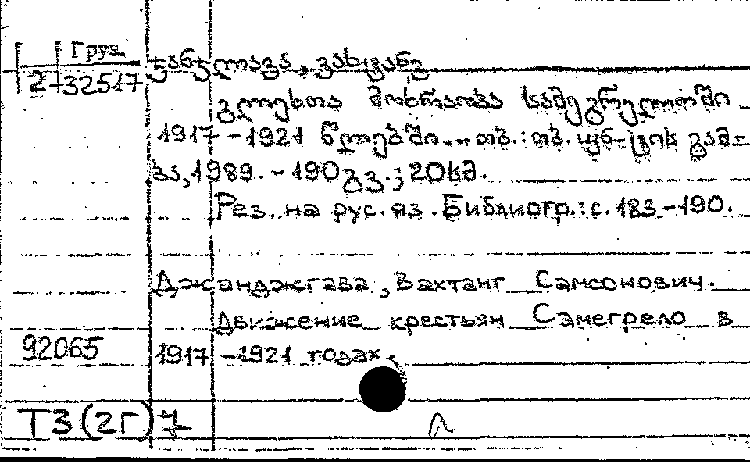 Груз.
2-32517 ჯანჯღავა, ვახტანგ
გლეხთა მოძრაობა სამეგრელოში
1917-1921 წლებში... თბ.: თბ. უნ-ტის გამ-
ბა, 1989. - 190 გვ.; 20სმ.
Рез. на рус. яз. Библиогр.: с. 183-190.
Джанджгава, Вахтанг Самсонович.
Движение крестьян Самегрело в
92065 1917-1921 годах.
Т3(2Г)7